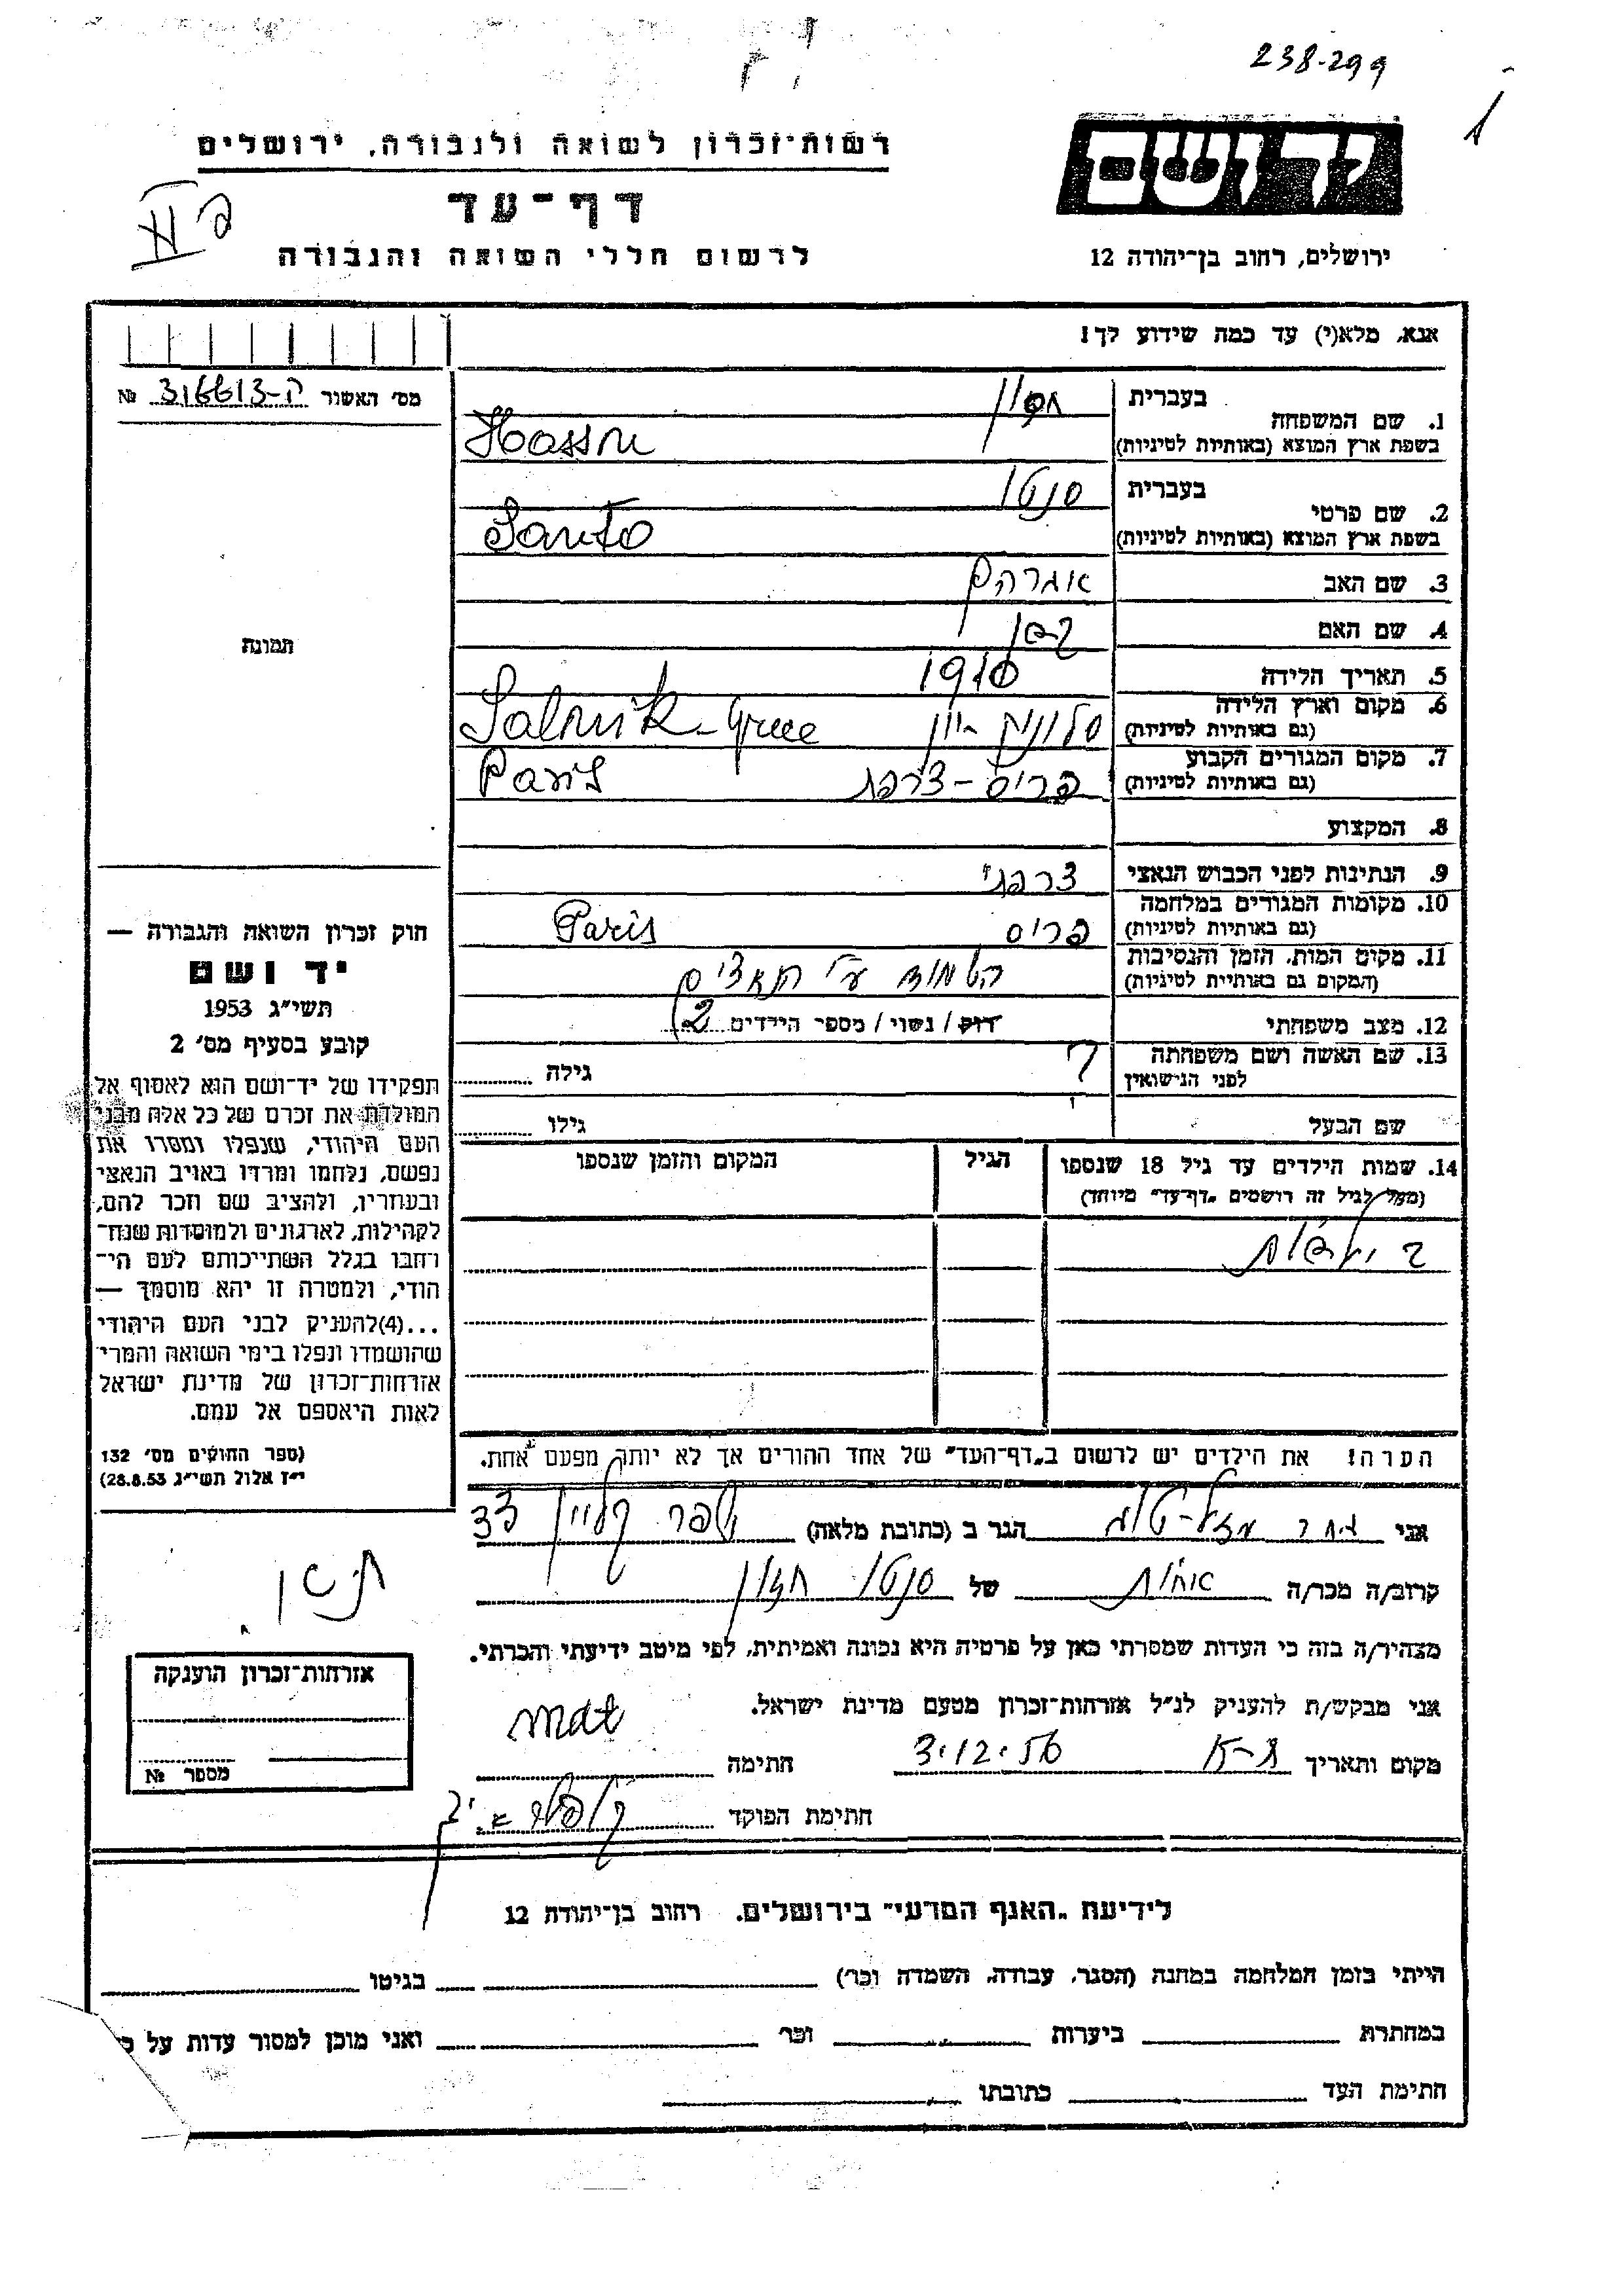 238-299
רשות־זכרון לשואה ולגבורה, ירושלים
יד ושם
דף־עד
לרשום חללי השואה והגבורה
ירושלים, רחוב בן־יהודה 12
אנא, מלא(י) עד כמה שידוע לך!
מס׳ האשור ה-316613 №
בעברית
1. שם המשפחה
בשפת ארץ המוצא (באותיות לטיניות) Hasson
בעברית סנטו
2. שם פרטי
בשפת ארץ המוצא (באותיות לטיניות) Santo
3. שם האב אברהם
4. שם האם
5. תאריך הלידה 1910
6. מקום וארץ הלידה
(גם באותיות לטיניות) סלוניק יוון Salonik - Grece
7. מקום המגורים הקבוע
(גם באותיות לטיניות) פריס - צרפת Paris
8. המקצוע
9. הנתינות לפני הכבוש הנאצי צרפתי
10. מקומות המגורים במלחמה
(גם באותיות לטיניות) פריס Paris
11. מקום המות, הזמן והנסיבות
(המקום גם באותיות לטיניות) הושמד ע״י הנאצים
12. מצב משפחתי רווק / נשוי / מספר הילדים 2
13. שם האשה ושם משפחתה
לפני הנישואין ? גילה
שם הבעל גילו
14. שמות הילדים עד גיל 18 שנספו הגיל המקום והזמן שנספו
(מעל לגיל זה רושמים „דף־עד״ מיוחד)
2 ילדות
הערה! את הילדים יש לרשום ב„דף־העד״ של אחד ההורים אך לא יותר מפעם אחת.
אני מזל-טוב הגר ב (כתובת מלאה) כפר 33
קרוב/ה מכר/ה אחות של סנטו חסון
מצהיר/ה בזה כי העדות שמסרתי כאן על פרטיה היא נכונה ואמיתית, לפי מיטב ידיעתי והכרתי.
אני מבקש/ת להעניק לנ״ל אזרחות־זכרון מטעם מדינת ישראל.
מקום ותאריך ת-א 3.12.56 חתימה
חתימת הפוקד
תמונה
חוק זכרון השואה והגבורה —
יד ושם
תשי״ג 1953
קובע בסעיף מס׳ 2
תפקידו של יד־ושם הוא לאסוף אל
המולדת את זכרם של כל אלה מבני
העם היהודי, שנפלו ומסרו את
נפשם, נלחמו ומרדו באויב הנאצי
ובעוזריו, ולהציב שם וזכר להם,
לקהילות, לארגונים ולמוסדות שנח־
רבו בגלל השתייכותם לעם הי־
הודי, ולמטרה זו יהא מוסמך —
...(4)להעניק לבני העם היהודי
שהושמדו ונפלו בימי השואה והמרי
אזרחות־זכרון של מדינת ישראל
לאות היאספם אל עמם.
(ספר החוקים מס׳ 132
י״ז אלול תשי״ג 28.8.53)
אזרחות־זכרון הוענקה
מספר №
לידיעת „האגף המדעי״ בירושלים. רחוב בן־יהודה 12
הייתי בזמן המלחמה במחנה (הסגר, עבודה, השמדה וכו׳) בגיטו
במחתרת ביערות וכו׳ ואני מוכן למסור עדות על כך
חתימת העד כתובתו